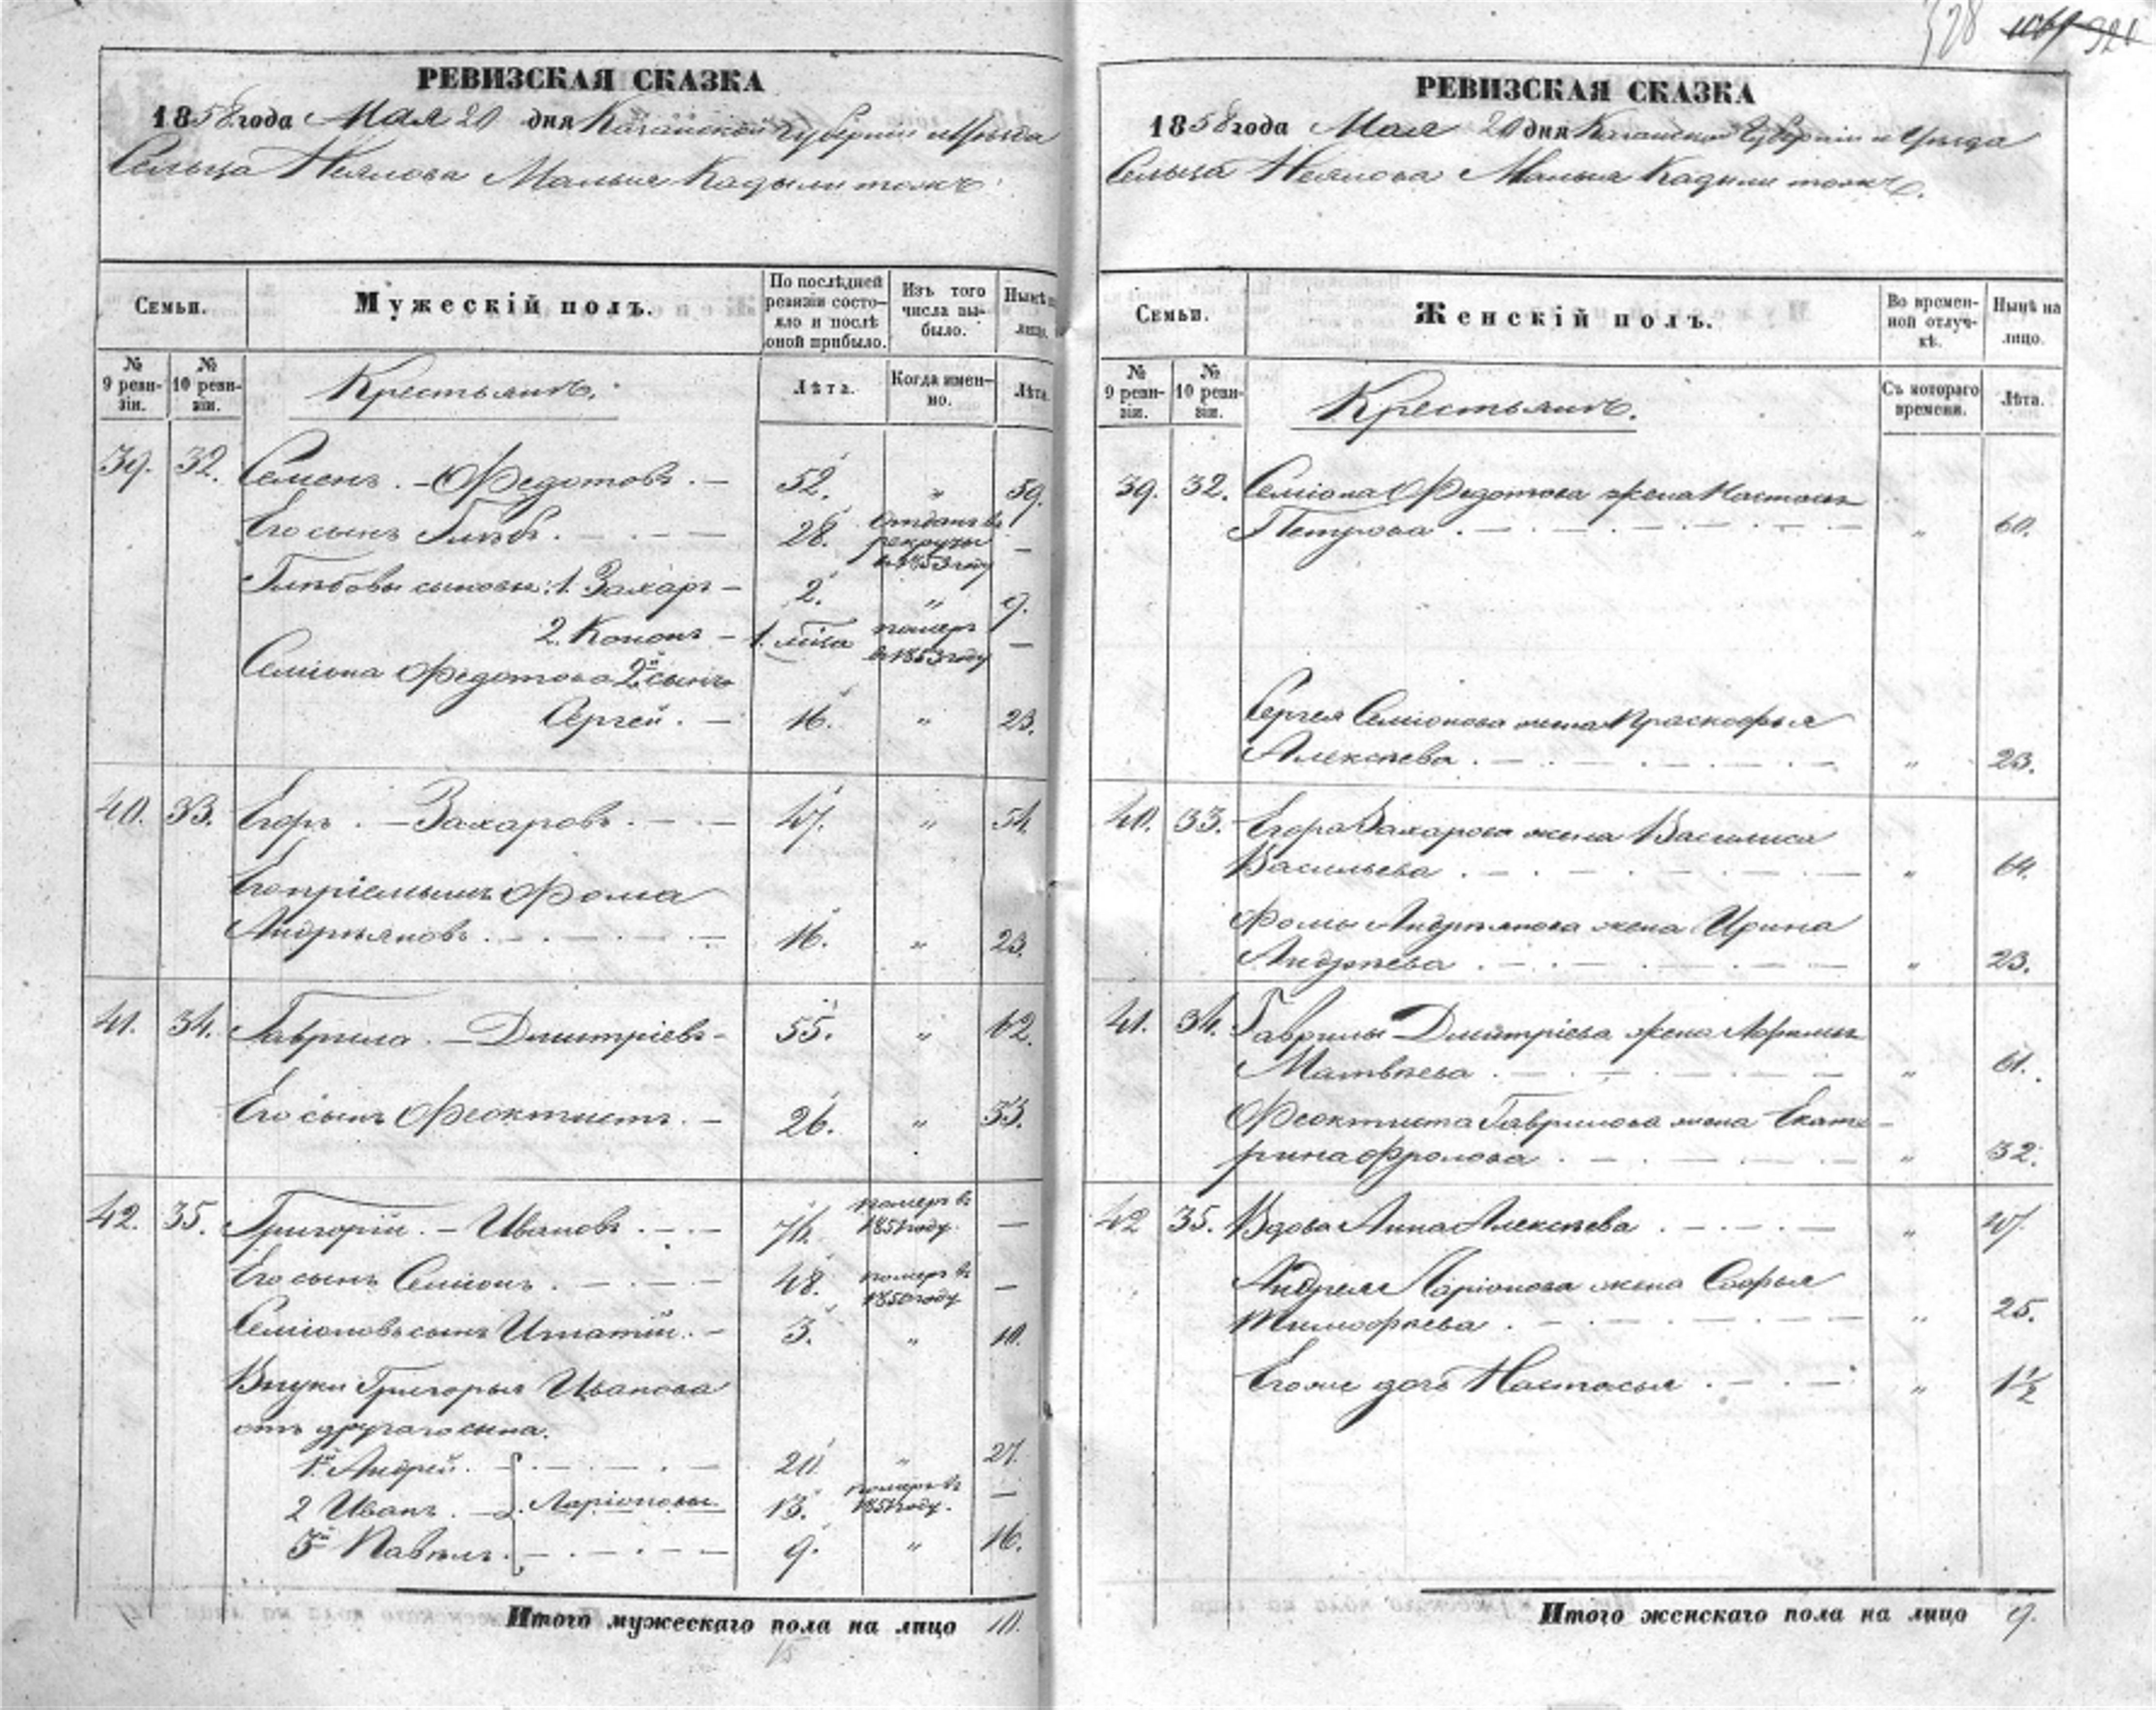 328
321
РЕВИЗСКАЯ СКАЗКА
1858 года Мая 20 дня Казанской Губернии и Уѣзда
Сельца Неялова Малыя Кадыли тожъ
Семьи.
Мужескій полъ.
По послѣдней ревизіи состояло и послѣ оной прибыло.
Изъ того числа выбыло.
Нынѣ на лицо.
№ 9 ревизіи.
№ 10 ревизіи.
Крестьянъ.
Лѣта.
Когда именно.
Лѣта.
39. 32. Семенъ. – Федотовъ. – 52. „ 59.
Его сынъ Глѣбъ. – 28. Отданъ въ рекруты въ 1853 году –
Глѣбовы сыновья: 1. Захаръ – 2. „ 9.
2. Кононъ – 1. померъ въ 1853 году –
Семіона Федотова 2й сынъ
Сергей. – 16. „ 23.
40. 33. Егоръ. – Захаровъ. – 47. „ 54.
Его пріемышъ Фома
Андрѣяновъ. – 16. „ 23.
41. 34. Гаврила. – Дмитріевъ – 55. „ 62.
Его сынъ Феоктистъ. – 26. „ 33.
42. 35. Григорій. – Ивановъ. – 74. померъ въ 1851 году. –
Его сынъ Семіонъ. – 48. померъ въ 1850 году –
Семіоновъ сынъ Игнатій. – 3. „ 10.
Внуки Григорья Иванова
отъ другаго сына.
1й Андрей. – 20. „ 27.
2 Иванъ. – Ларіоновы. 13. померъ въ 1851 году. –
3й Павелъ. – 9. „ 16.
Итого мужескаго пола на лицо 10.
РЕВИЗСКАЯ СКАЗКА
1858 года Мая 20 дня Казанской Губерніи и Уѣзда
Сельца Неялова Малыя Кадыли тожъ.
Семьи.
Женскій полъ.
Во временной отлучкѣ.
Нынѣ на лицо.
№ 9 ревизіи.
№ 10 ревизіи.
Крестьянъ.
Съ котораго времени.
Лѣта.
39. 32. Семіона Федотова жена Настасья
Петрова. – „ 60.
Сергея Семіонова жена Прасковья
Алексѣева. – „ 23.
40. 33. Егора Захарова жена Василиса
Васильева. – „ 64.
Фомы Андрѣянова жена Ирина
Андрѣева. – „ 23.
41. 34. Гаврилы Дмитріева жена
Матвѣева. – „ 61.
Феоктиста Гаврилова жена Екате-
рина Фролова. – „ 32.
42 35. Вдова Анна Алексѣева. – „ 47.
Андрея Ларіонова жена Софья
Тимофѣева. – „ 25.
Его же дочь Настасья. – „ 1½
Итого женскаго пола на лицо 9.